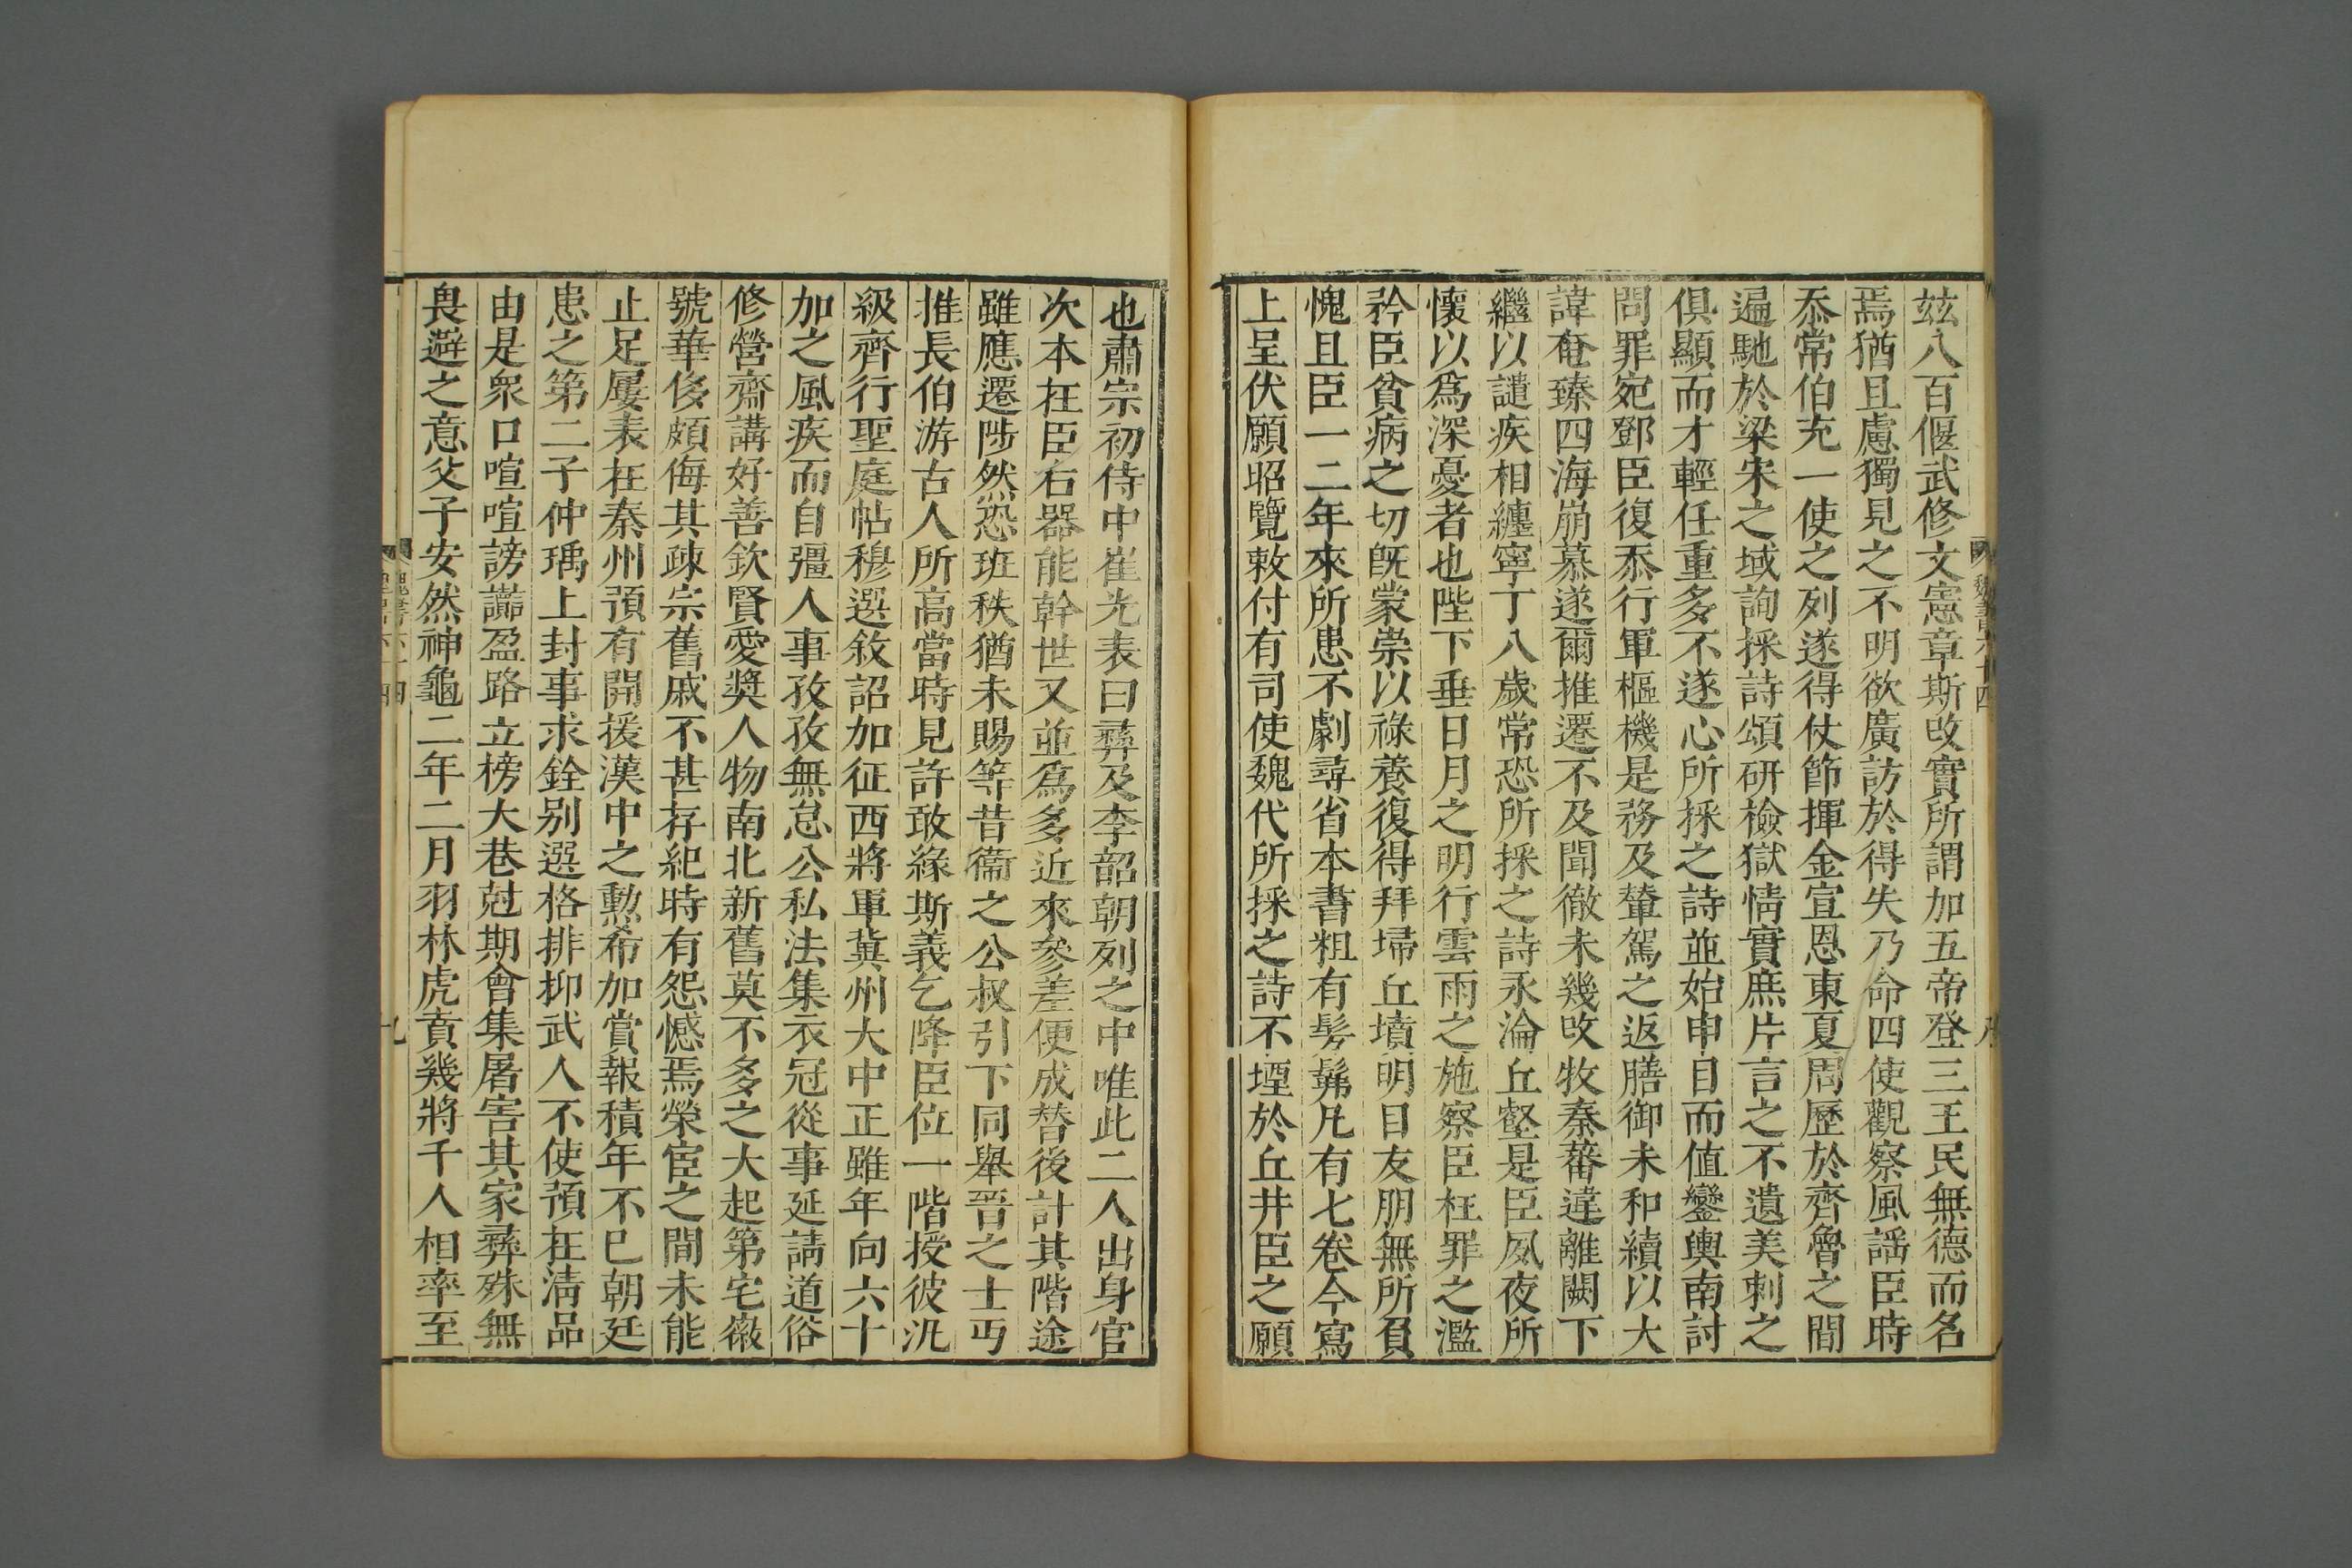 玆八百偃武修文憲章斯改實所謂加五帝登三王民無德而名
焉猶且慮獨見之不明欲廣訪於得失乃命四使觀察風謡臣時
忝常伯充一使之列遂得仗節揮金宣恩東夏周歷於齊魯之間
遍馳於梁宋之域詢採詩頌研檢獄情實庶片言之不遺美刺之
俱顯而才輕任重多不遂心所採之詩並始申目而值鑾輿南討
問罪宛鄧臣復忝行軍樞機是務及輦駕之返膳御未和續以大
諱奄臻四海崩慕遂爾推遷不及聞徹未幾改牧秦蕃違離闕下
繼以譴疾相纏寧丁八歲常恐所採之詩永淪丘壑是臣夙夜所
懷以爲深憂者也陛下垂日月之明行雲雨之施察臣枉罪之濫
矜臣貧病之切旣蒙崇以祿養復得拜埽丘墳明目友朋無所負
愧且臣一二年來所患不劇尋省本書粗有髣髴凡有七卷今寫
上呈伏願昭覽敕付有司使魏代所採之詩不堙於丘井臣之願
也肅宗初侍中崔光表曰彝及李韶朝列之中唯此二人出身官
次本在臣右器能幹世又並爲多近來參差便成替後計其階途
雖應遷陟然恐班秩猶未賜等昔衞之公叔引下同舉晉之士丐
推長伯游古人所高當時見許敢緣斯義乞降臣位一階授彼汎
級齊行聖庭帖穆選敘詔加征西將軍冀州大中正雖年向六十
加之風疾而自彊人事孜孜無怠公私法集衣冠從事延請道俗
修營齋講好善欽賢愛奬人物南北新舊莫不多之大起第宅徽
號華侈頗侮其疎宗舊戚不甚存紀時有怨憾焉榮宦之間未能
止足屢表在秦州預有開援漢中之勲希加賞報積年不已朝廷
患之第二子仲瑀上封事求銓别選格排抑武人不使預在淸品
由是衆口喧喧謗讟盈路立榜大巷尅期會集屠害其家彝殊無
畏避之意父子安然神龜二年二月羽林虎賁幾將千人相率至
魏書六十四
九